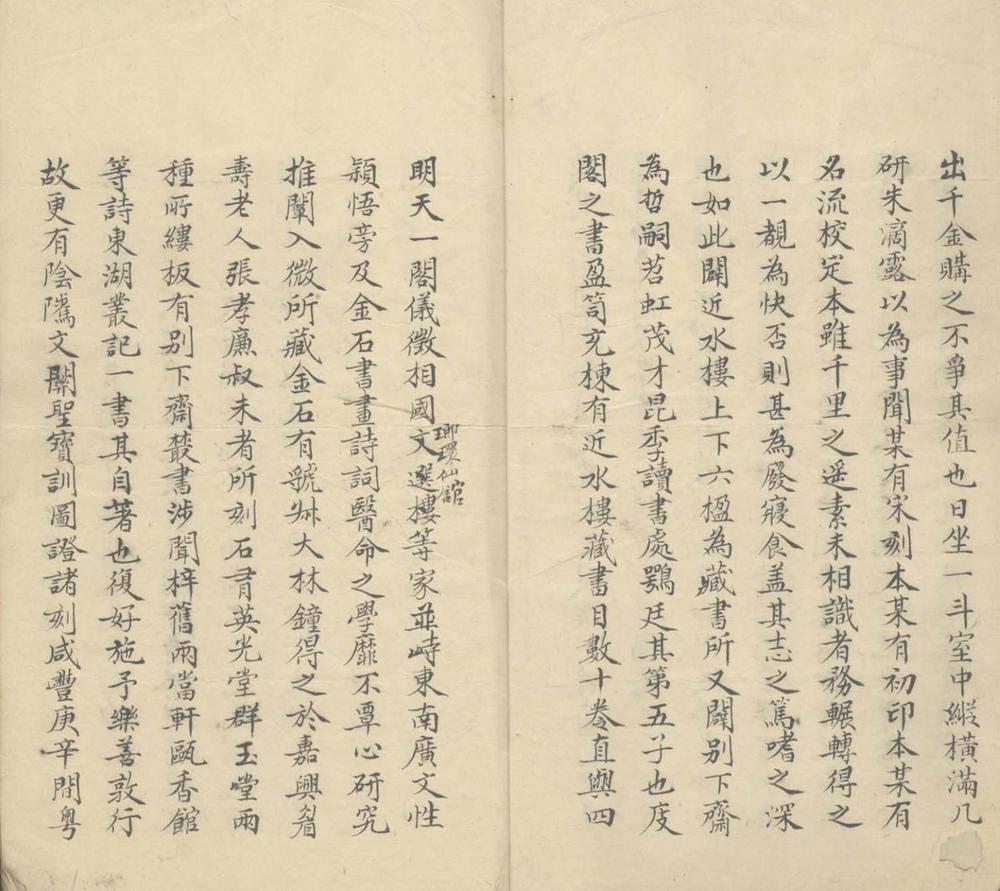 出千金購之不爭其值也日坐一斗室中縱橫滿几
研朱滴露以為事聞某有宋刻本某有初印本某有
名流校定本雖千里之遥素未相識者務輾轉得之
以一覩為快否則甚為廢寢食盖其志之篤嗜之深
也如此闢近水樓上下六楹為藏書所又闢别下齋
為哲嗣苕虹茂才昆季讀書處鶚廷其第五子也庋
閣之書盈笥充棟有近水樓藏書目數十卷直與四
明天一閣儀徵相國文選樓等家並峙東南廣文性
瑯環仙館
穎悟旁及金石書畫詩詞醫命之學靡不覃心研究
推闡入微所藏金石有虢叔大林鐘得之於嘉興眉
壽老人張孝廉叔未者所刻石有英光堂群玉堂兩
種所縷板有别下齋叢書涉聞梓舊兩當軒甌香館
等詩東湖叢記一書其自著也復好施予樂善敦行
故更有陰隲文關聖寶訓圖證諸刻咸豐庚辛間粤